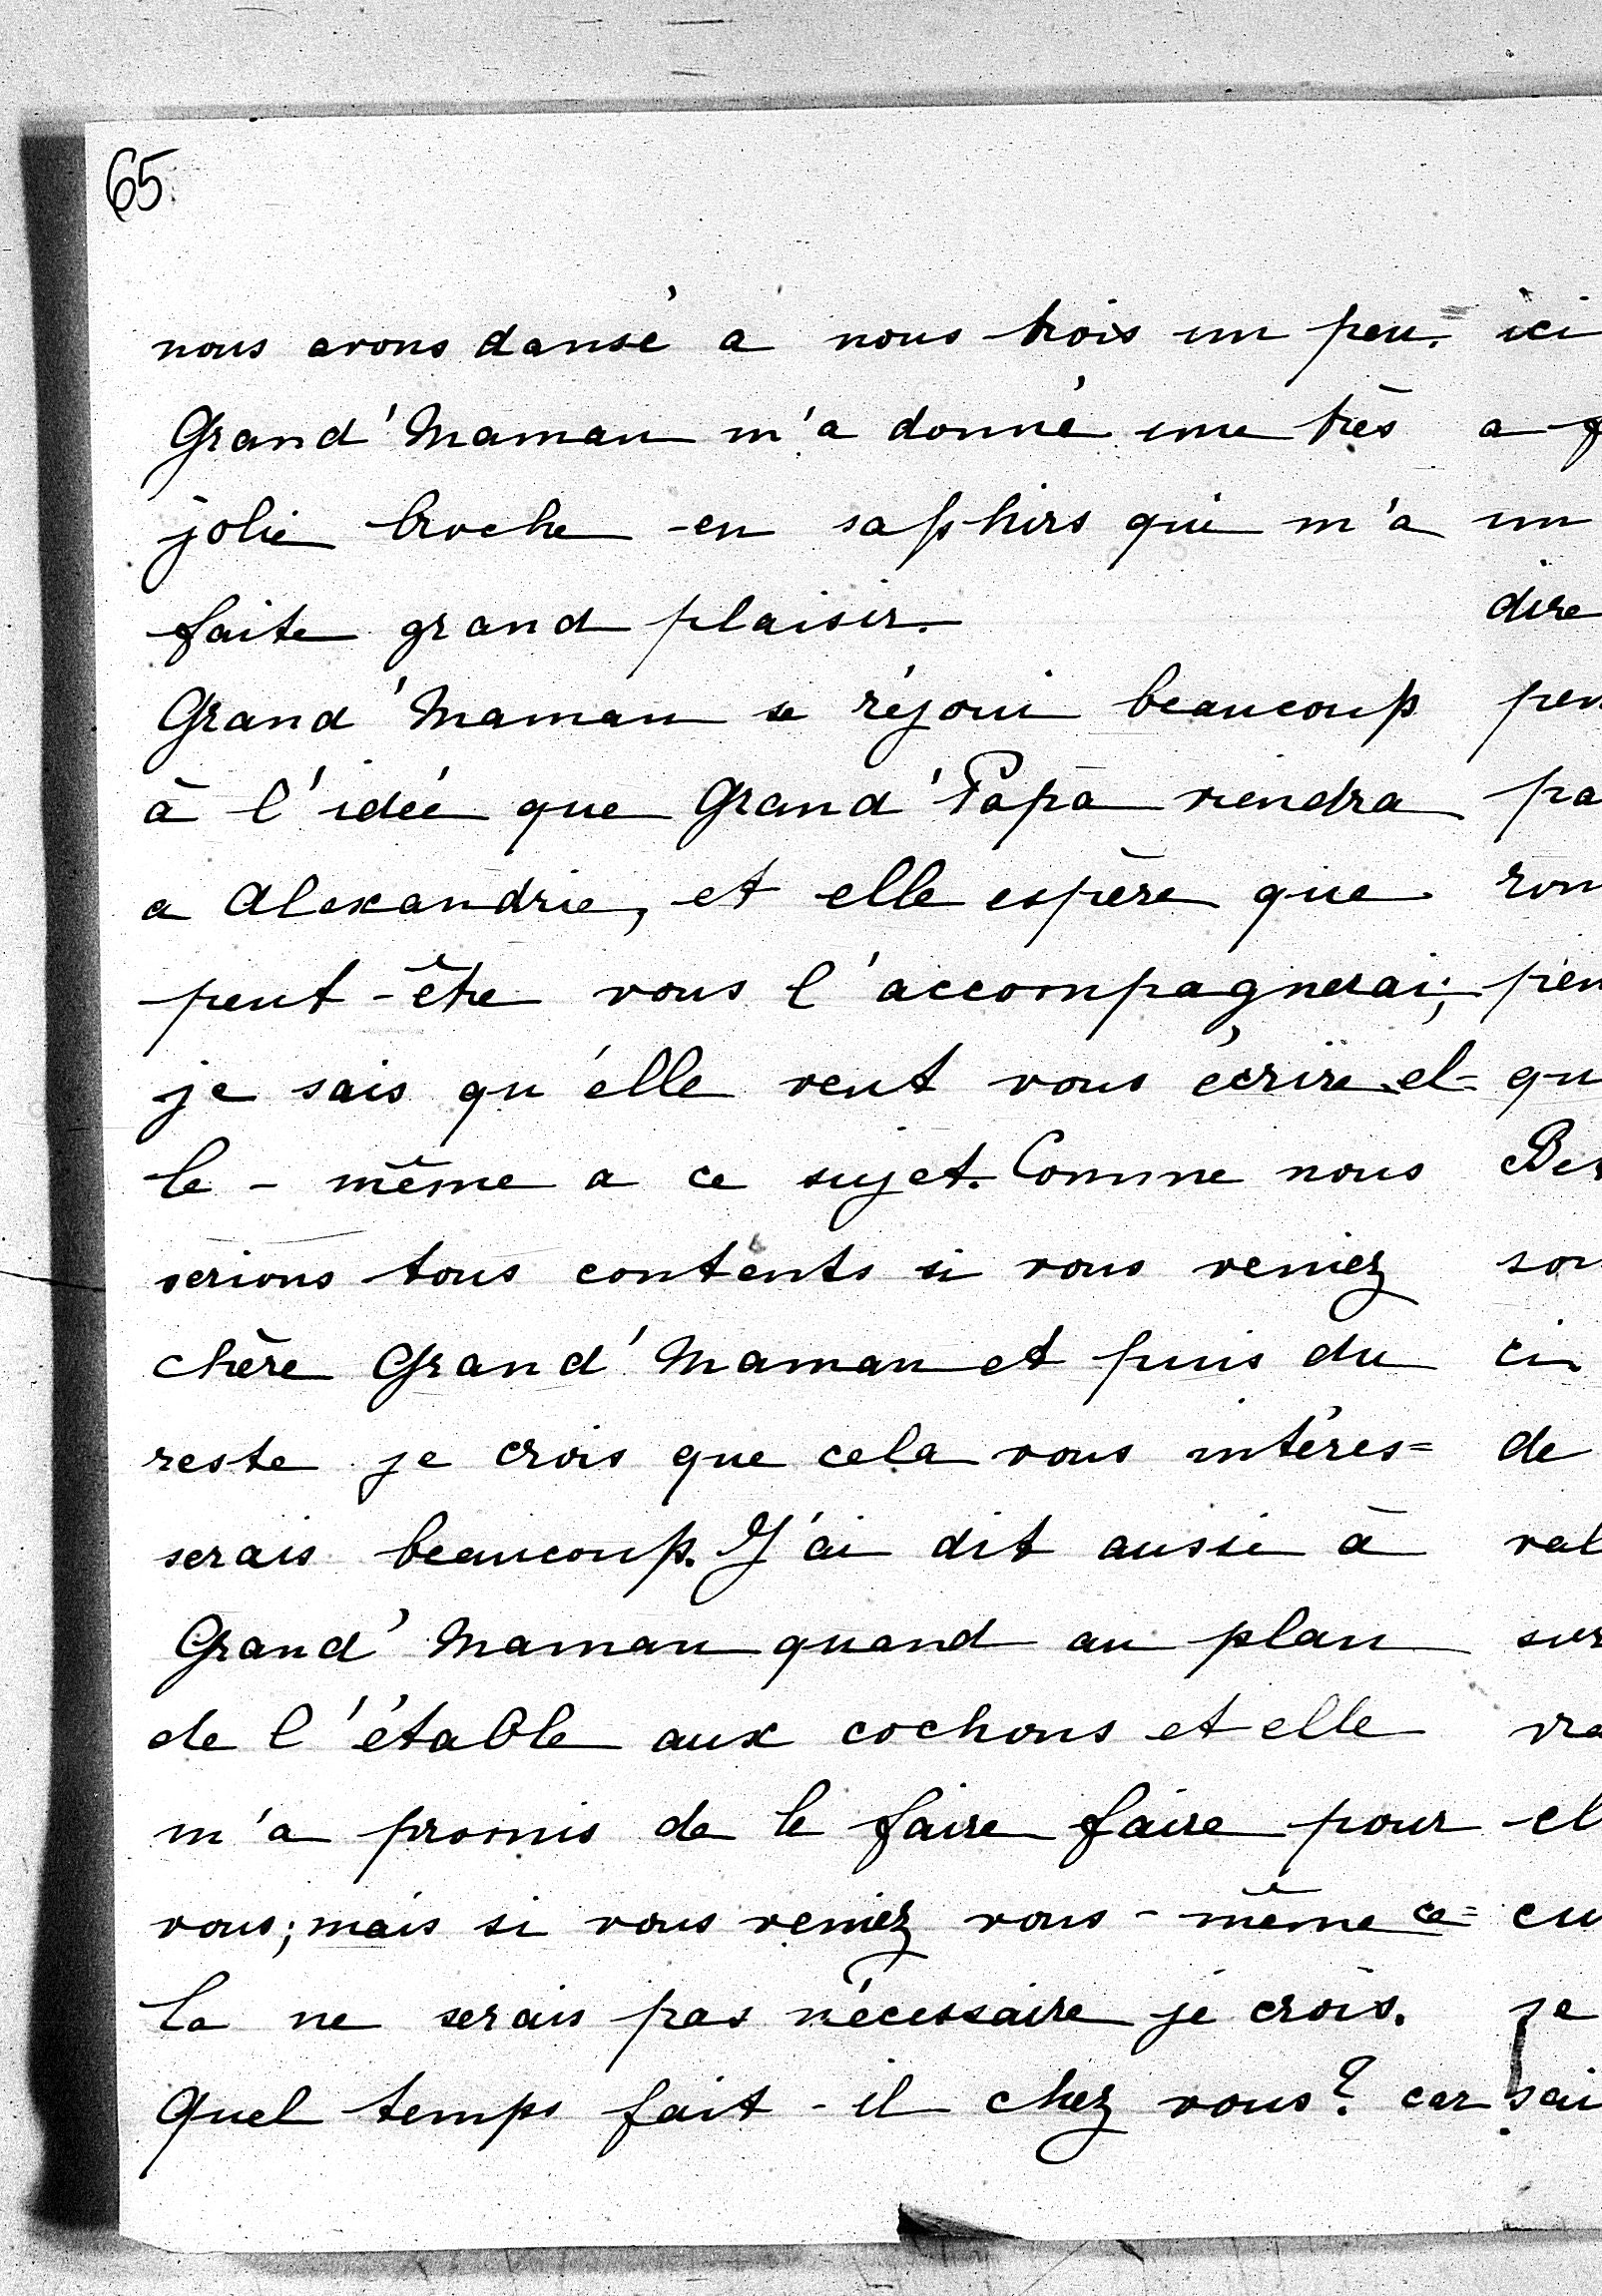 65.
nous avons dansé a nous trois un peu.
Grand'Maman m'a donné une très
jolie broche en saphirs qui m'a
faite grand plaisir.
Grand'Maman se réjoui beaucoup
à l'idée que Grand'Papa viendra
a Alexandrie, et elle espère que
peut-être vous l'accompagnerai;
je sais qu'elle veut vous écrire el=
le-même a ce sujet. Comme nous
serions tous contents si vous veniez
chère Grand'Maman et puis du
reste je crois que cela vous intéres=
serais beaucoup. J'ai dit aussi à
Grand'Maman quand au plan
de l'étable aux cochons et elle
m'a promis de le faire faire pour
vous; mais si vous veniez vous-même ce=
la ne serais pas nécessaire je crois.
Quel temps fait-il chez vous? car
ici
a
un
dire
de
je